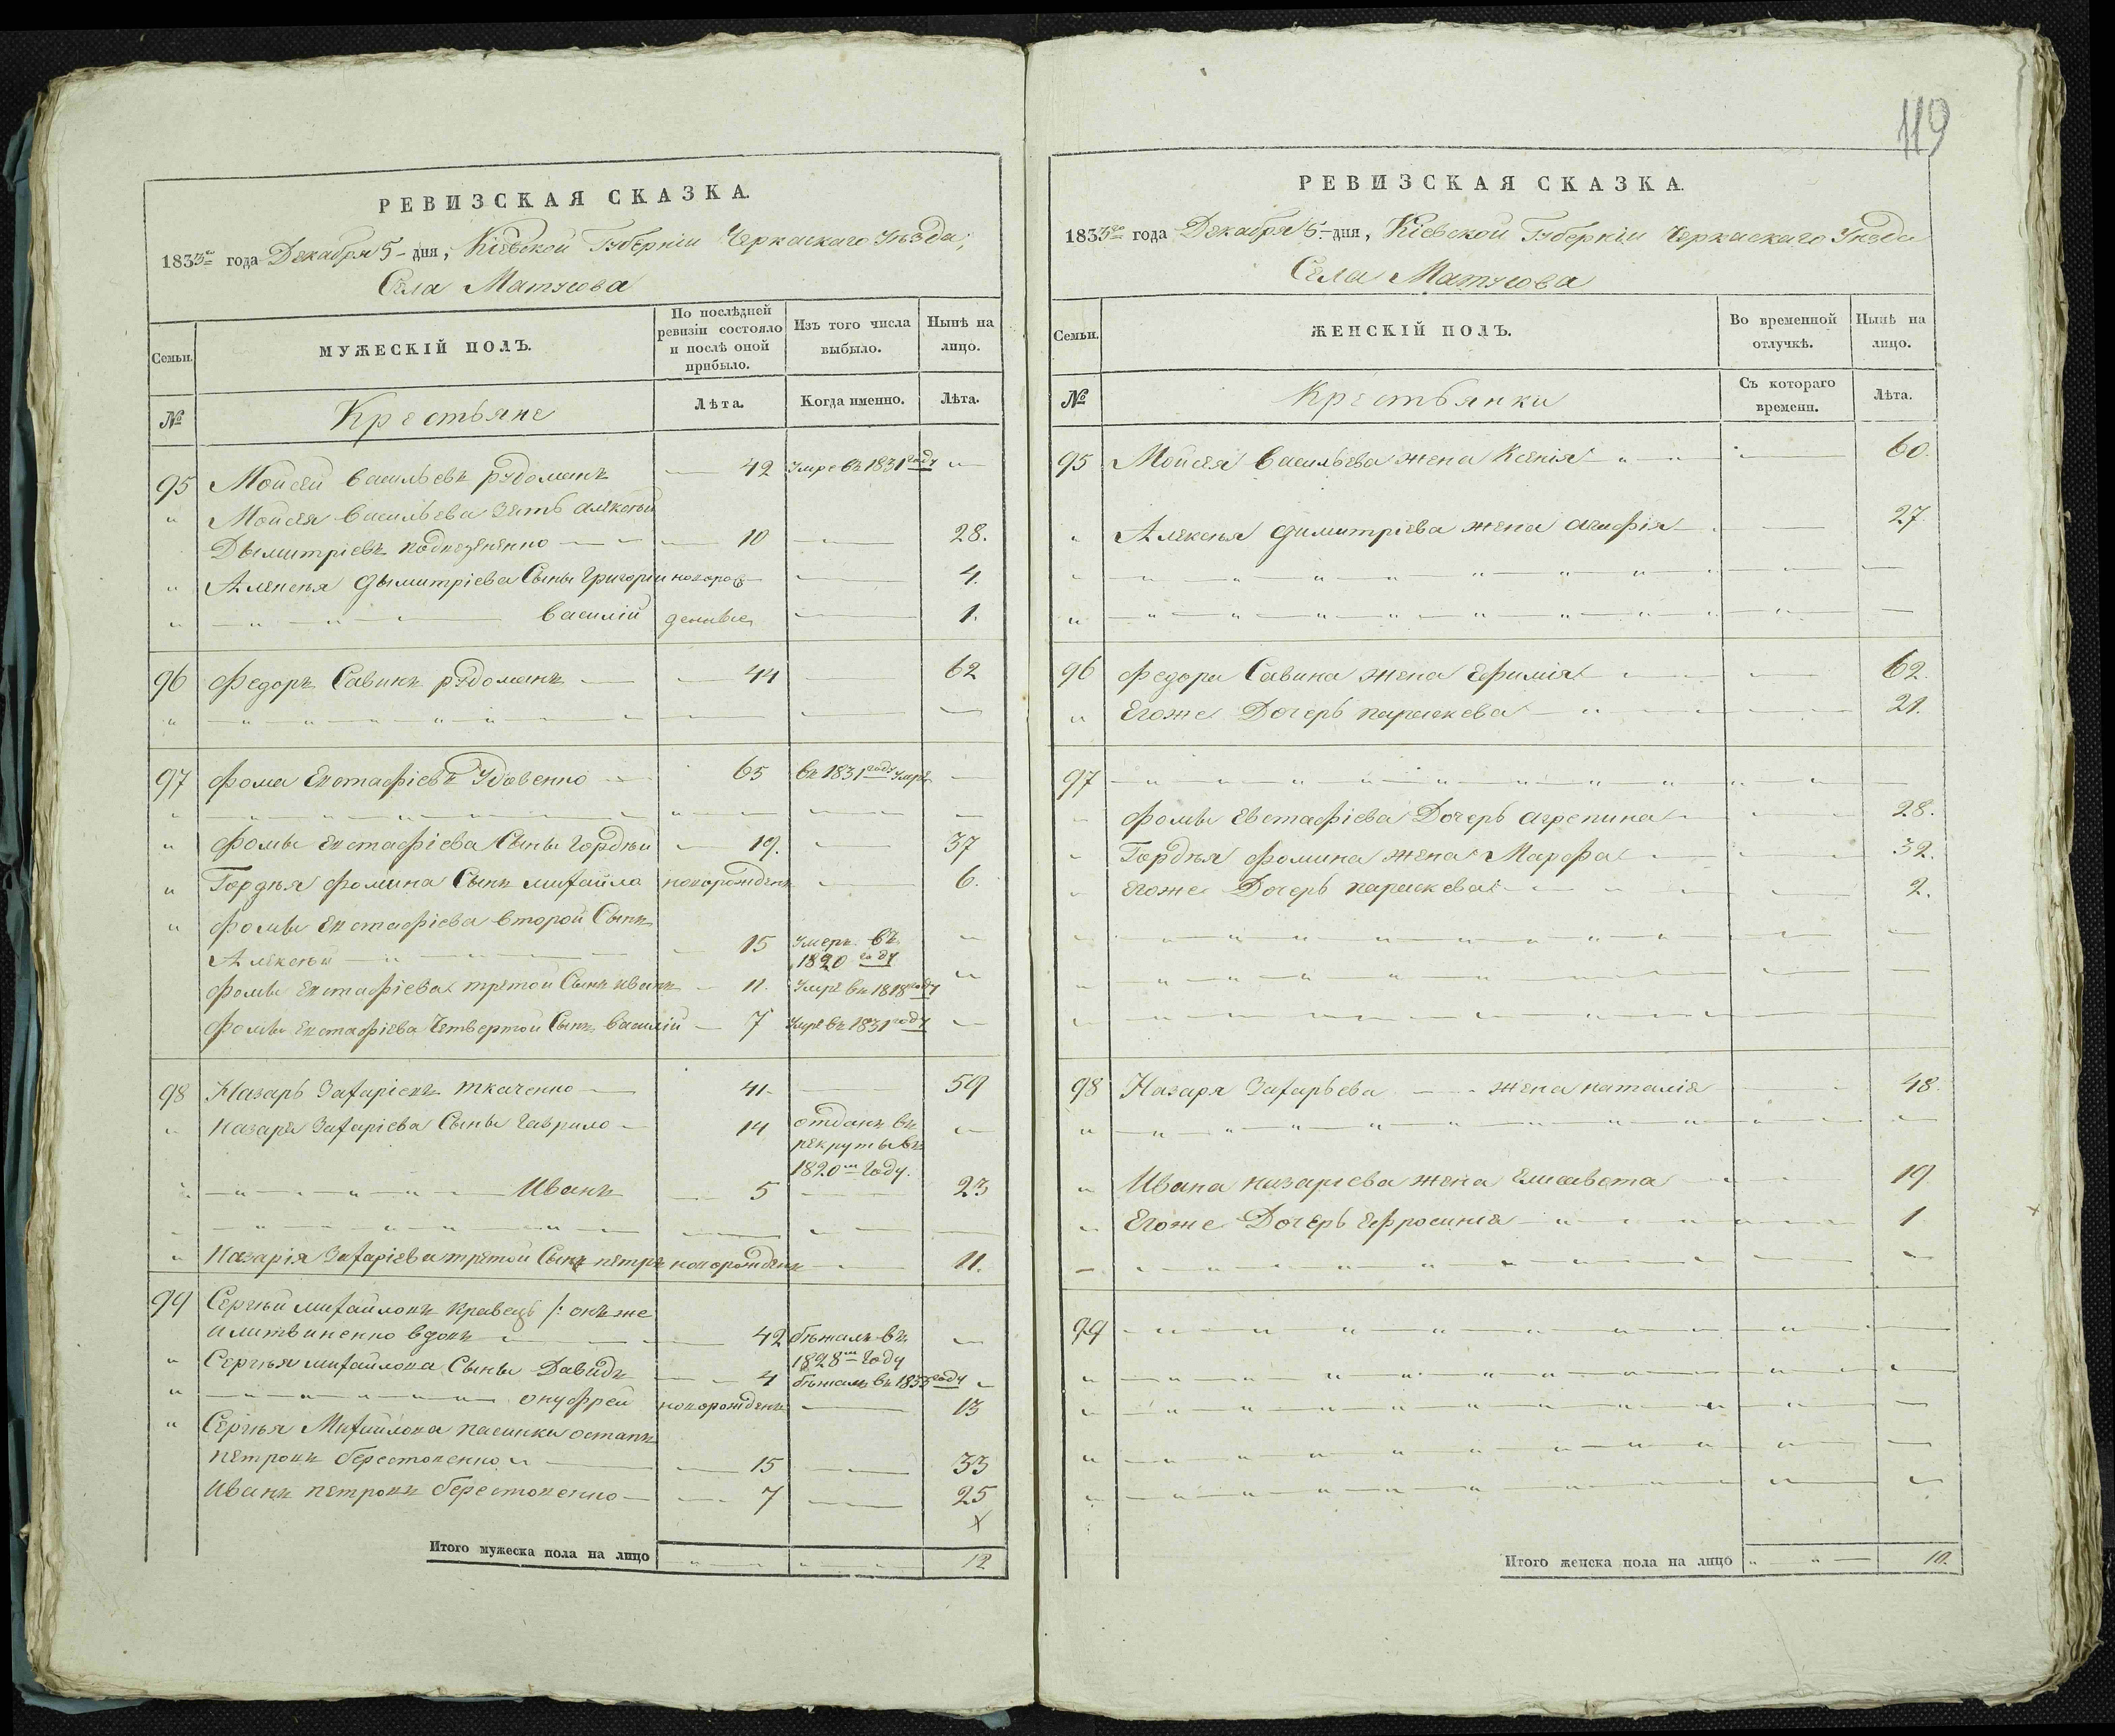 119
РЕВИЗСКАЯ СКАЗКА.
1833го года Декабря 5- дня, Кіевской Губерніи Черкаскаго Уѣзда,
Села Матусова
Семьи.
МУЖЕСКІЙ ПОЛЪ.
По послѣдней ревизіи состояло и послѣ оной прибыло.
Изъ того числа выбыло.
Нынѣ на лицо.
№
Крестьяне
Лѣта.
Когда именно.
Лѣта.
95 Мойсей Васильевъ рудоманъ 42 Умре въ 1831 году
Мойсея Васильева Зять алексѣй
Дымитріевъ 10 28.
Алексѣя Дымитріева Сыны Григорій новорож 4.
Василій денные 1.
96 Федоръ Савинъ рудоманъ 44 62
97 Фома Евстафіевъ Удовенко 65 въ 1831 году умре
Фомы Евстафіева Сыны Гордѣй 19. 37
Гордѣя Фомина Сынъ михайло новорожденъ 6.
Фомы Евстафіева второй Сынъ
Алексѣй 15 Умеръ въ 1820 году
Фомы Евстафіева третой Сынъ иванъ 11. Умре въ 1818 году
Фомы Евстафіева Четвертой Сынъ Василій 7 Умре въ 1831 году
98 Назаръ Захаріевъ ткаченко 41 59
Назара Захаріева Сыны Гаврило 14 отданъ въ рекруты въ 1820м Году.
Иванъ 5 23
Назарія Захаріева третой Сынъ петръ новорожденъ 11.
99 Сергѣй михайловъ кравецъ /: онъ же
и литвиненко вдовъ 42 бѣжалъ въ 1828м Году
Сергѣя михайлова Сыны Давидъ 4 бѣжалъ въ 1833 году
онуфрей новорожденъ 13
Сергѣя Михайлова пасинки остапъ
петровъ берестовенко 15 33
Иванъ петровъ берестовенко 7 25
х
Итого мужеска пола на лицо 12
РЕВИЗСКАЯ СКАЗКА.
1833го года Декабря 5.- дня, Кіевской Губерніи Черкаскаго Уѣзда
Села Матусова
Семьи.
ЖЕНСКІЙ ПОЛЪ.
Во временной отлучкѣ.
Нынѣ на лицо.
№
Крестьянки
Съ котораго времени.
Лѣта.
95 Мойсея Васильева жена Ксенія 60.
Алексѣя Димитріева жена агафія 27.
96 Федора Савина жена Ефимія 62.
Егоже Дочерь параскева 21.
97
Фомы Евстафіева Дочерь агрепина 28.
Гордѣя Фомина жена Марфа 32.
Егоже Дочерь параскева 2.
98 Назаря Захарьева жена наталія 48.
Ивана назаріева жена Елисавета 19
Егоже Дочерь Ефросинія 1
99
Итого женска пола на лицо 10.